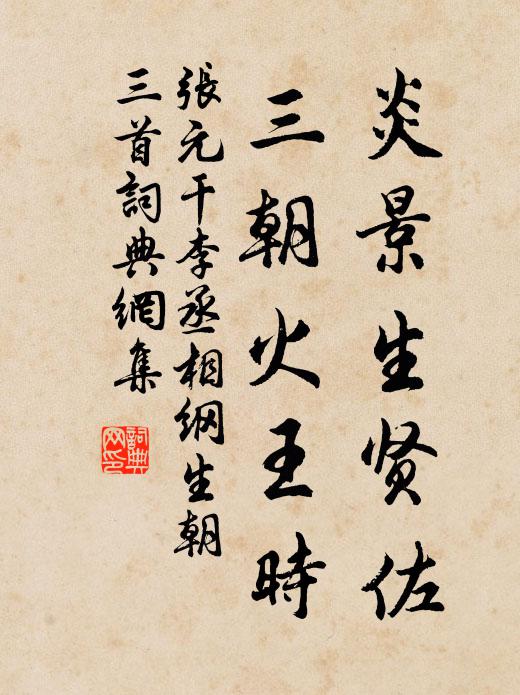 炎景生贤佐
三朝火王時
張元干李丞相纲生朝
三首詞典網集
詞典
网印